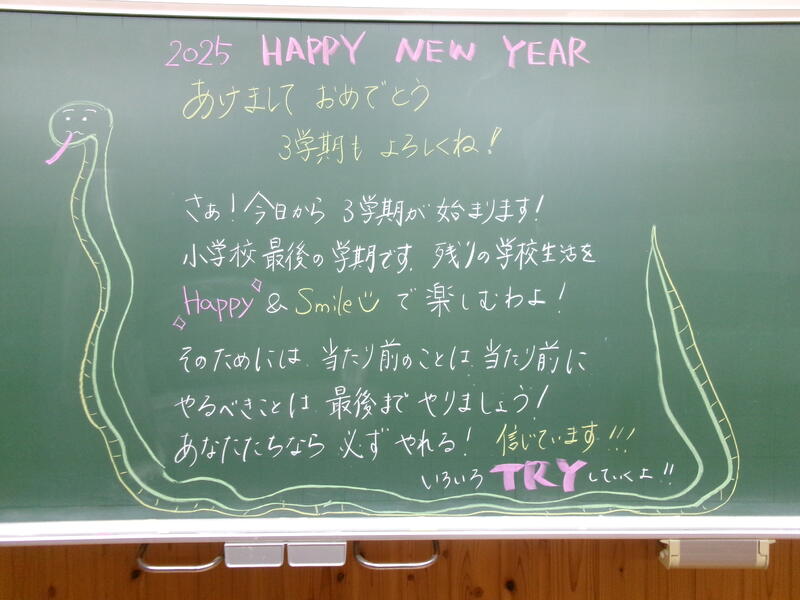 2025 HAPPY NEW YEAR
あけまして おめでとう
3学期も よろしくね!
さぁ!今日から 3学期が 始まります!
小学校 最後の 学期です。残りの 学校生活を
Happy & Smile で 楽しむわよ!
そのためには 当たり前のことは 当たり前に
やるべきことは 最後まで やりましょう!
あなたたちなら 必ず やれる! 信じています!!!
いろいろ TRY していくよ!!